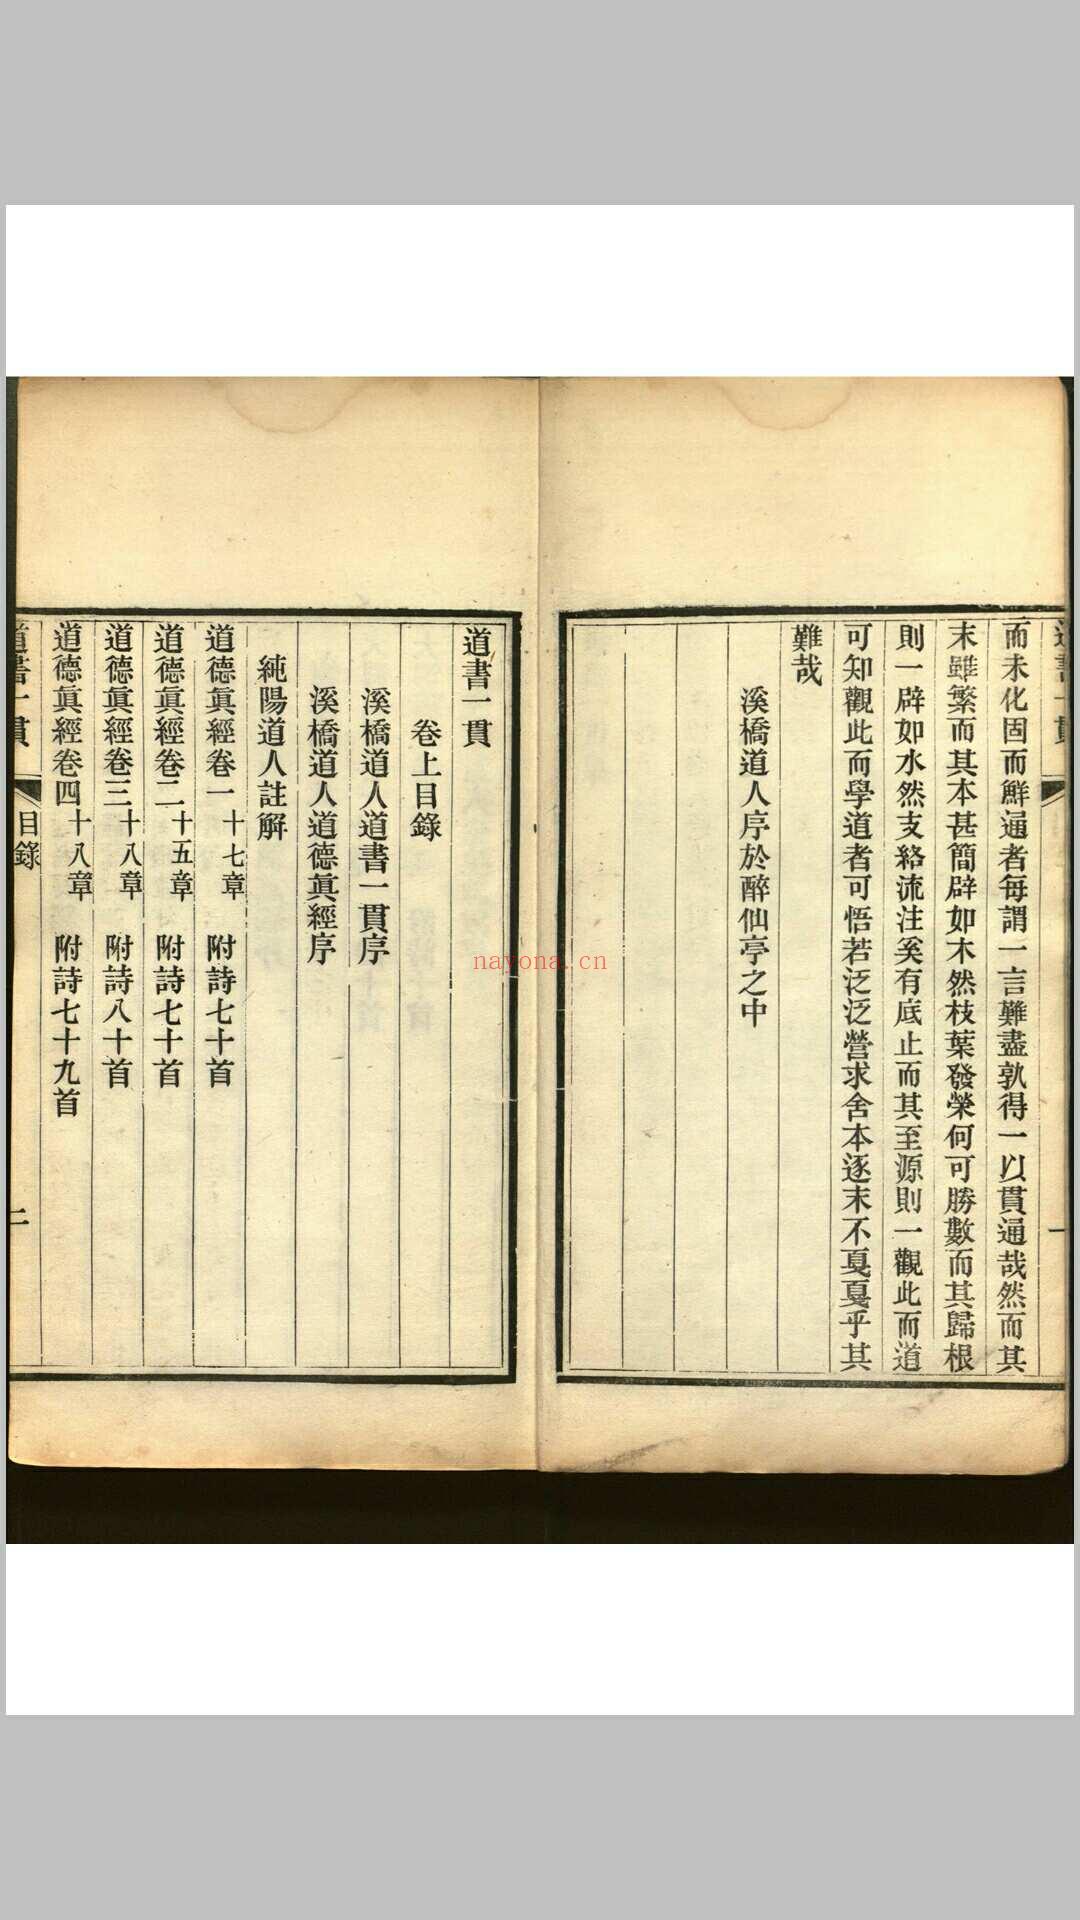 而未化固而鮮通者每謂一言難盡孰得一以貫通哉然而其
末雖繁而其本甚簡辟如木然枝葉發榮何可勝數而其歸根
則一辟如水然支絡流注奚有底止而其至源則一觀此而道
可知觀此而學道者可悟若泛泛營求舍本逐末不戛戛乎其
難哉
溪橋道人序於醉仙亭之中
道書一貫
卷上目錄
溪橋道人道書一貫序
溪橋道人道德眞經序
純陽道人註解
道德眞經卷一 十七章 附詩七十首
道德眞經卷二 十五章 附詩七十首
道德眞經卷三 十八章 附詩八十首
道德眞經卷四 十八章 附詩七十九首
道書一貫 目錄 二
nayona.cn